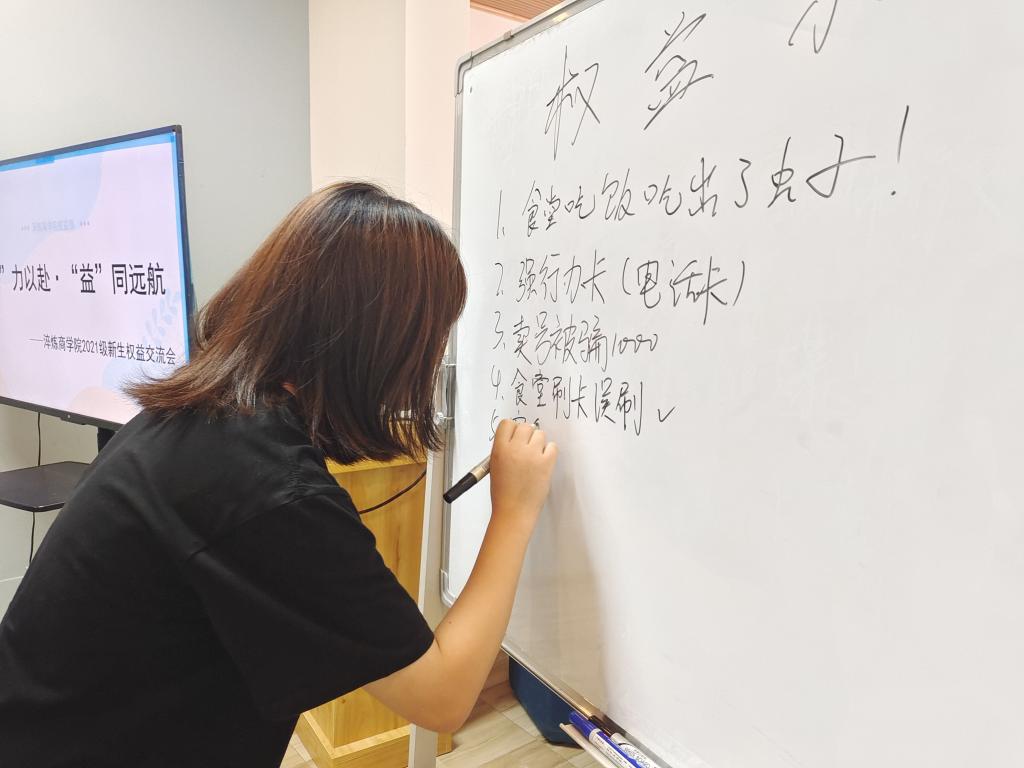 ”力以赴·“益”同远航
——淬炼商学院2021级新生权益交流会
权益
1. 食堂吃饭吃出了虫子！
2. 强行办卡（电话卡）
3. 卖号被骗1000
4. 食堂刷卡误刷✓
5.